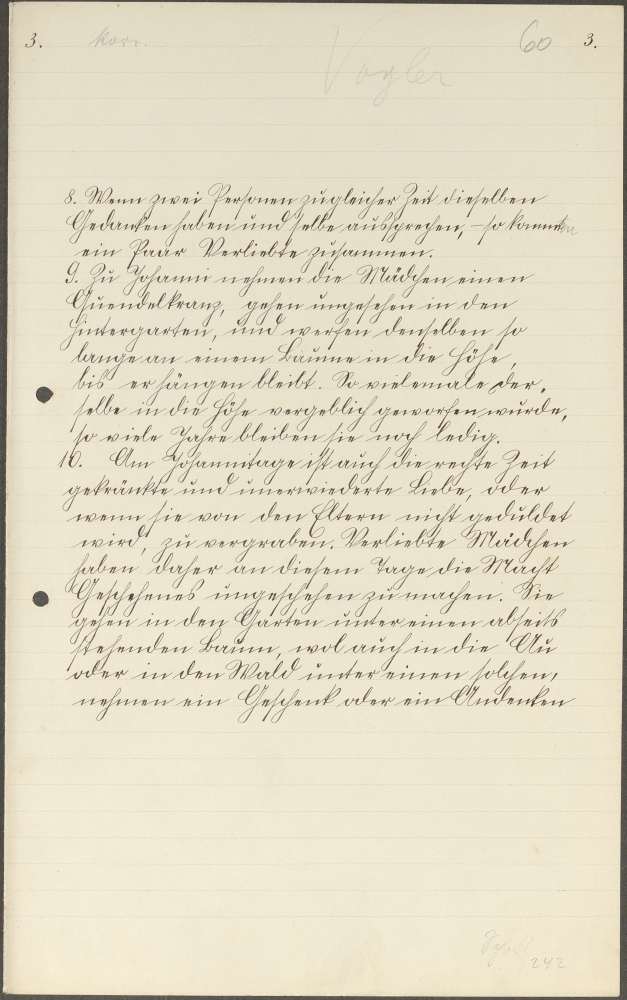 3. korr. 60 3.
Vogler
8. Wenn zwei Personen zugleicher Zeit dieselben
Gedanken haben und selbe aussprechen, – so kommen
ein Paar Verliebte zusammen.
9. Zu Johanni nehmen die Mädchen einen
Quendelkranz, gehen ungesehen in den
Hintergarten, und werfen denselben so
lange an einem Baume in die Höhe,
bis er hängen bleibt. So vielemale der-
selbe in die Höhe vergeblich geworfen wurde,
so viele Jahre bleiben sie noch ledig.
10. Am Johannitage ist auch die rechte Zeit
gekränkte und unerwiederte Liebe, oder
wenn sie von den Eltern nicht geduldet
wird, zu vergraben. Verliebte Mädchen
haben daher an diesem Tage die Macht
Geschehenes ungeschehen zu machen. Sie
gehen in den Garten unter einen abseits
stehenden Baum, wol auch in die Au
oder in den Wald unter einen solchen,
nehmen ein Geschenk oder ein Andenken
242